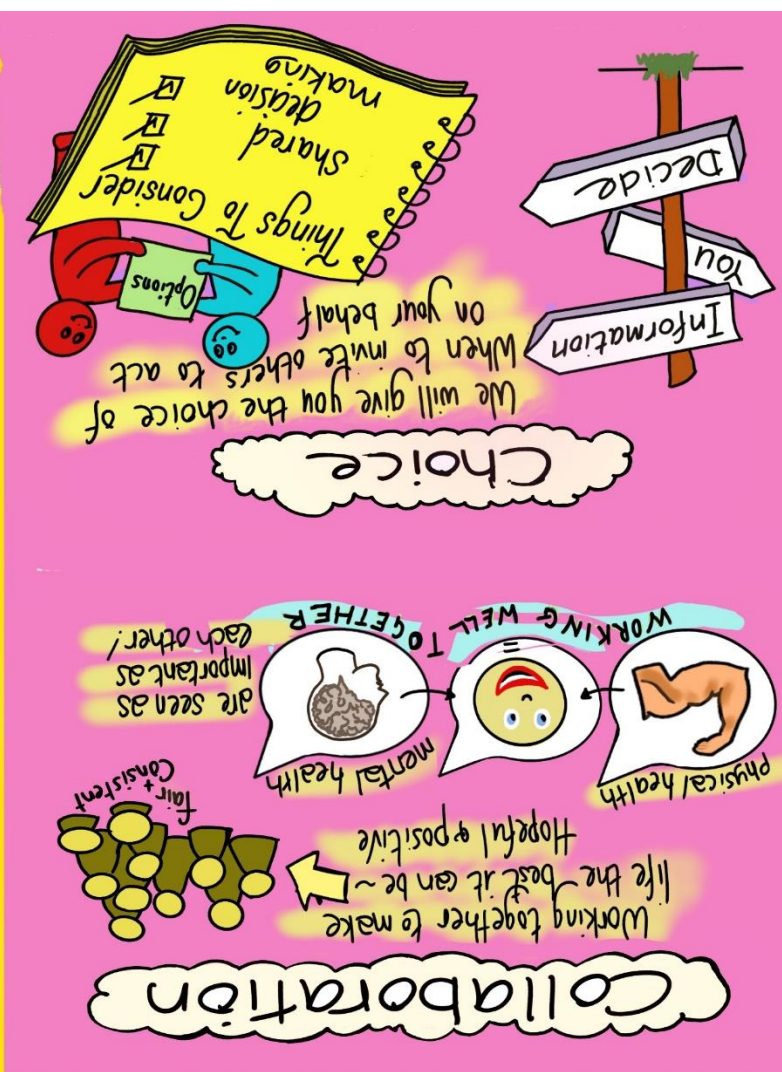 Collaboration
Working together to make
life the best it can be ~
Hopeful & positive
fair +
Consistent
physical health
mental health
=
WORKING WELL TOGETHER
are seen as
important as
each other!
Choice
We will give you the choice of
When to invite others to act
On your behalf
Information
You
Decide
Options
Things To Consider
Shared
decision
making